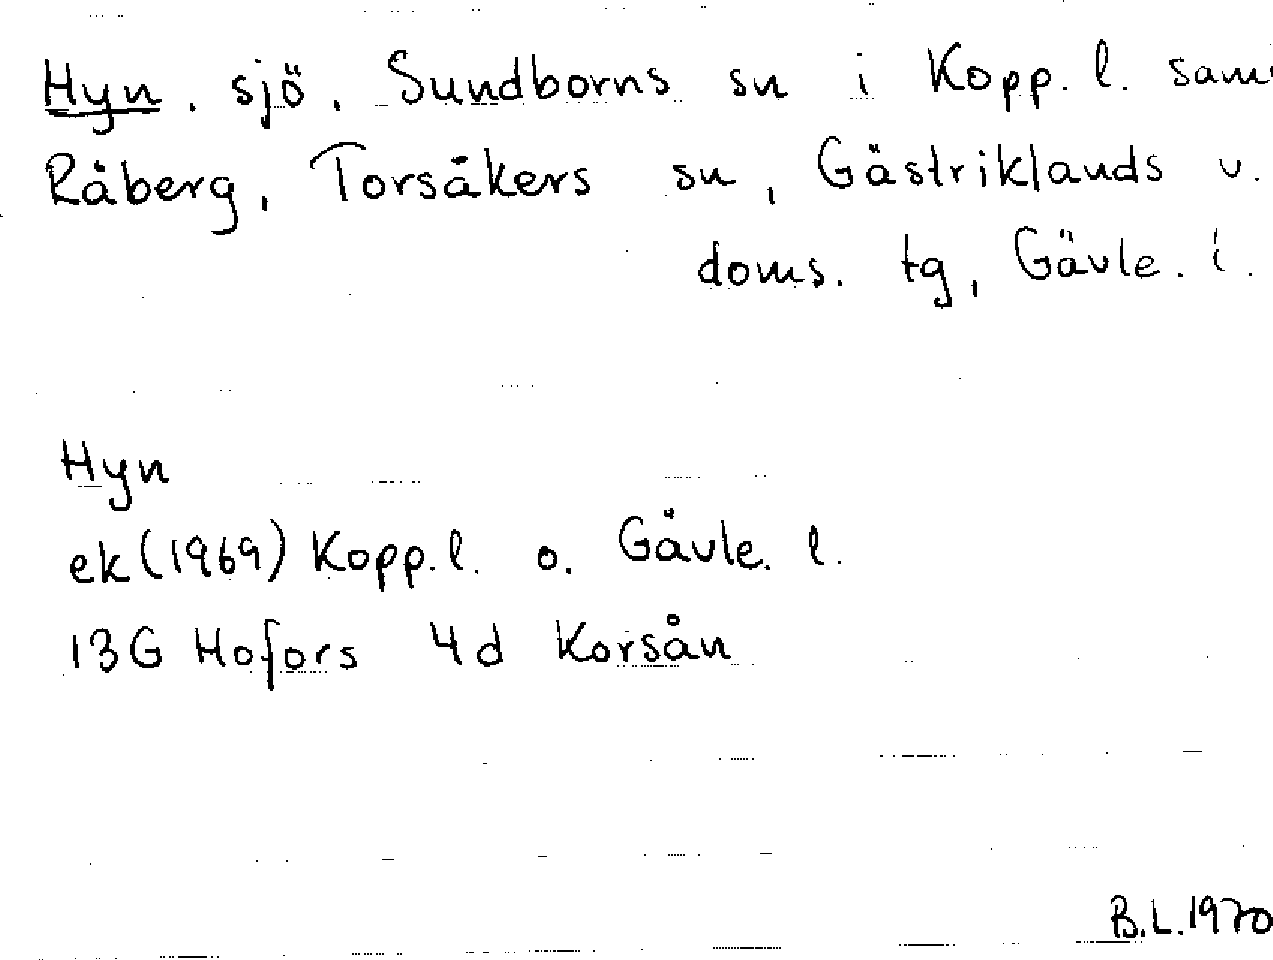 Hyn. sjö. Sundborns sn i Kopp. l. sam
Råberg, Torsåkers sn, Gästriklands v.
doms. tg, Gävle. l.
Hyn
ek (1969) Kopp. l. o. Gävle. l.
13G Hofors 4d Korsån
B.L. 1970